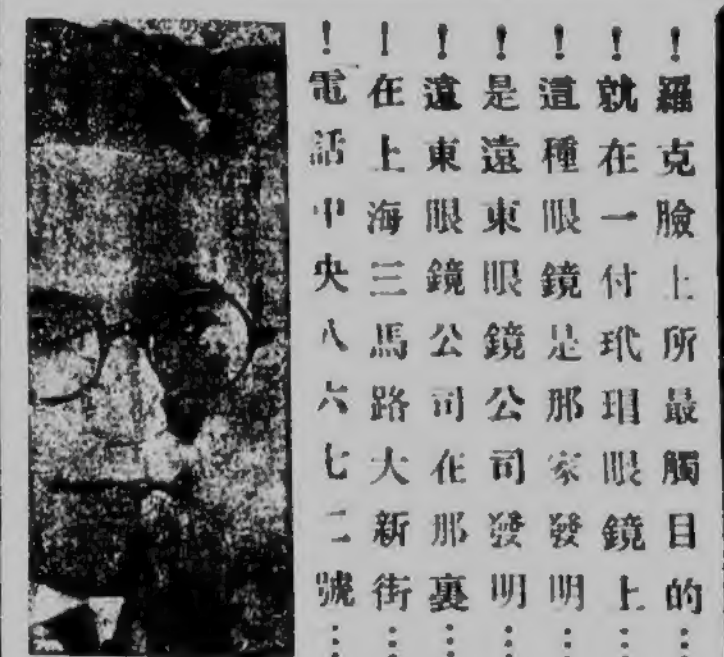 ！羅克臉上所最觸目的⋮
！就在一付玳瑁眼鏡上⋮
！這種眼鏡是那家發明⋮
！是遠東眼鏡公司發明⋮
！遠東眼鏡公司在那裏⋮
！在上海三馬路大新街⋮
！電話中央八六七二號⋮